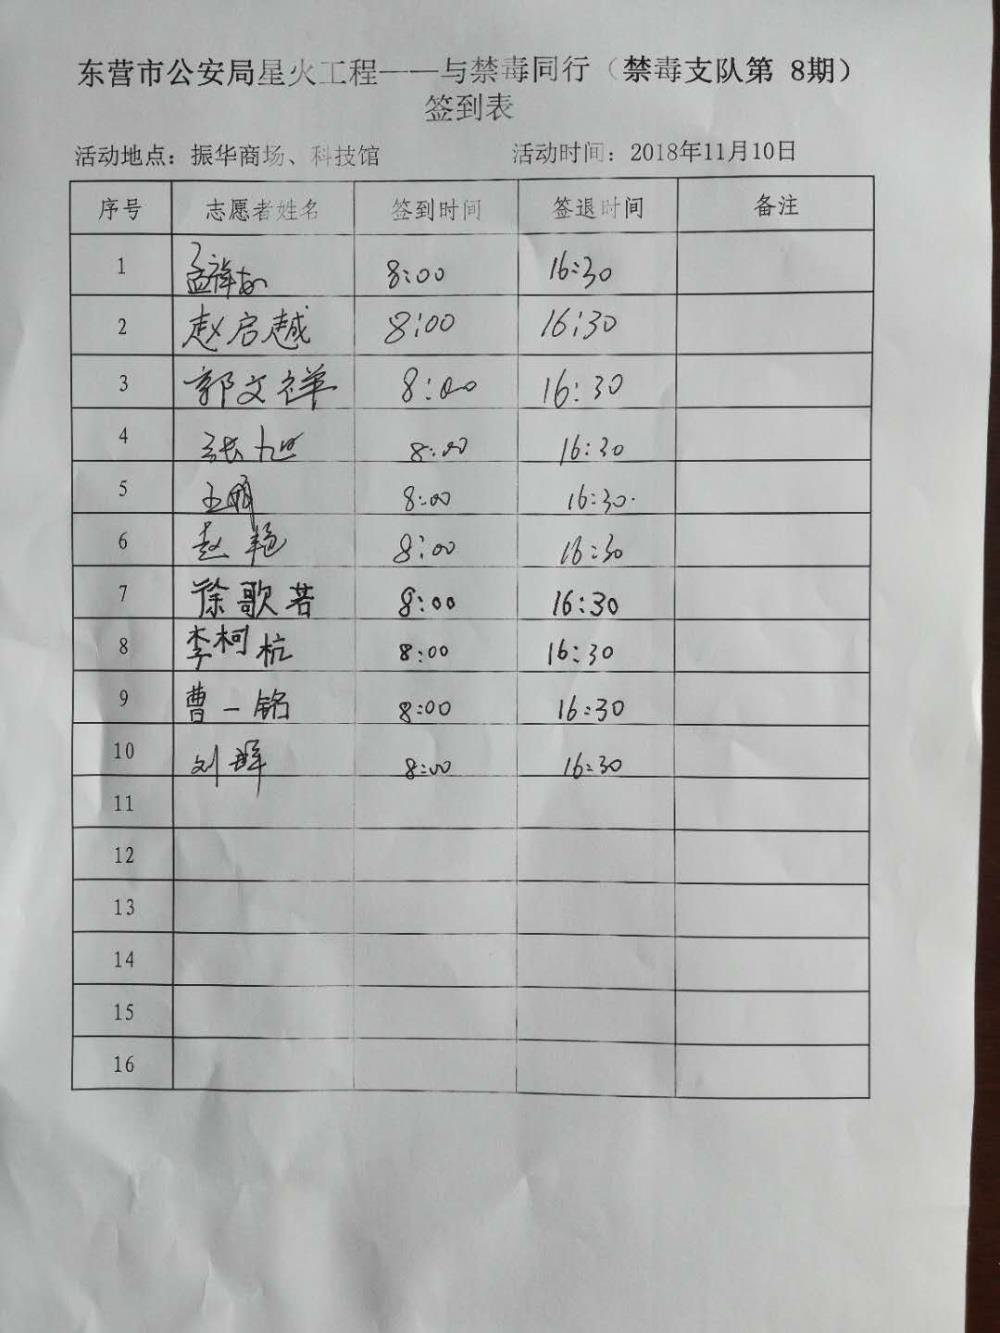 东营市公安局星火工程——与禁毒同行（禁毒支队第 8期）
签到表
活动地点：振华商场、科技馆 活动时间：2018年11月10日
序号 志愿者姓名 签到时间 签退时间 备注
1 孟祥 8:00 16:30
2 赵启越 8:00 16:30
3 郭文祥 8:00 16:30
4 张旭 8:00 16:30
5 王 8:00 16:30
6 赵艳 8:00 16:30
7 徐歌若 8:00 16:30
8 李柯杭 8:00 16:30
9 曹一铭 8:00 16:30
10 刘辉 8:00 16:30
11
12
13
14
15
16